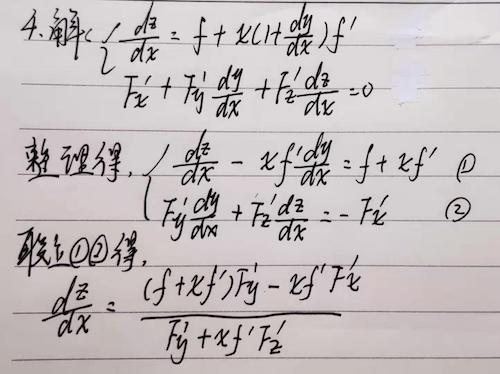 4.解: { dz/dx = f + x(1+dy/dx)f'
F'x + F'y dy/dx + F'z dz/dx = 0
整理得, { dz/dx - xf' dy/dx = f + xf' ①
F'y dy/dx + F'z dz/dx = - F'x ②
联立①②得,
dz/dx = ((f+xf')F'y - xf'F'x) / (F'y + xf'F'z)